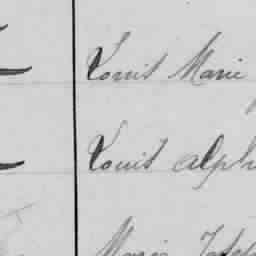 Louis Marie
Louis alph
Marie Josep